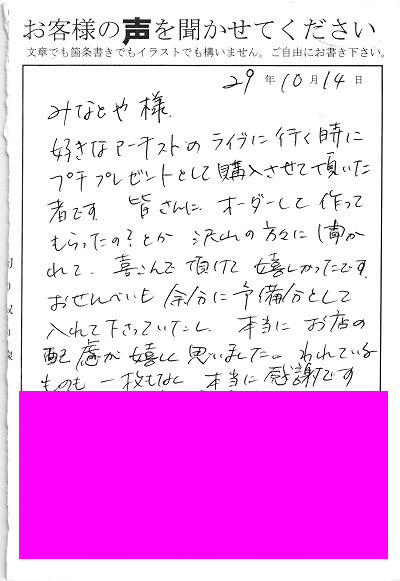 お客様の声を聞かせてください
文章でも箇条書きでもイラストでも構いません。ご自由にお書き下さい。
29年10月14日
みなとや様
好きなアーチストのライブに行く時に
プチプレゼントとして購入させて頂いた
者です 皆さんに オーダーして 作って
もらったの?とか 沢山の方々に 聞か
れて、喜こんで 頂けて 嬉しかったです
おせんべいも 余分に 予備分として
入れて下さっていたし 本当に お店の
配慮が 嬉しく 思いました。 われている
ものも 一枚もなく 本当に 感謝です